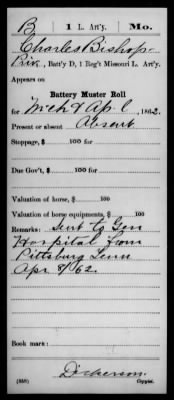 B | 1 L. Art'y. | Mo.
Charles Bishop
Priv., Batt'y D, 1 Reg't Missouri L. Art'y.
Appears on
Battery Muster Roll
for Mch & Apl, 1862.
Present or absent Absent
Stoppage, $ 100 for
Due Gov't, $ 100 for
Valuation of horse, $ 100
Valuation of horse equipments, $ 100
Remarks: Sent to Gen
Hospital from
Pittsburg Tenn
Apr 8/62.
Book mark:
Dickerson
(358) Copyist.